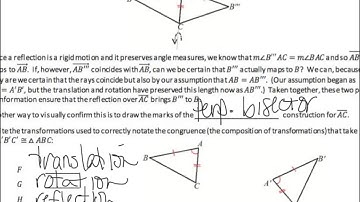 C
B'''
ce a reflection is a rigid motion and it preserves angle measures, we know that m∠B'''AC = m∠BAC and so AB
ps to AB. If, however, AB''' coincides with AB, can we be certain that B''' actually maps to B? We can, because
y are we certain that the rays coincide but also by our assumption that AB = AB'''. (Our assumption began as
= A'B', but the translation and rotation have preserved this length now as AB'''.) Taken together, these two p
information ensure that the reflection over AC brings B''' to B.
perp. bisector
ther way to visually confirm this is to draw the marks of the construction for AC.
te the transformations used to correctly notate the congruence (the composition of transformations) that take
'B'C' ≅ △ABC:
F translation
G rotation
H reflection
B
A
C
B'
A'